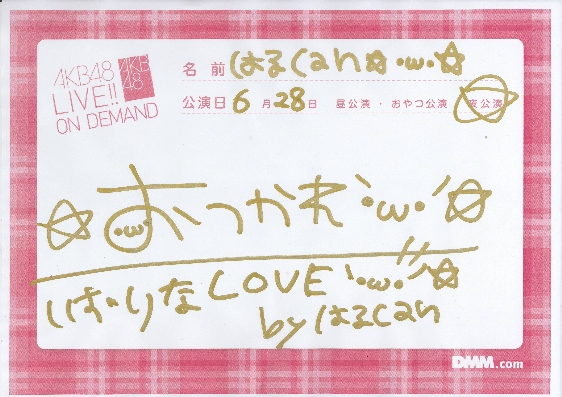 AKB48
LIVE!!
ON DEMAND
AKB
48
名 前 はるくAん☆ ・ω・ ☆
公演日 6 月 28 日 昼公演 ・ おやつ公演 夜公演
☆おつかれ`・ω・´☆
LOVE `・ω・´☆
by はるくAん
DMM.com